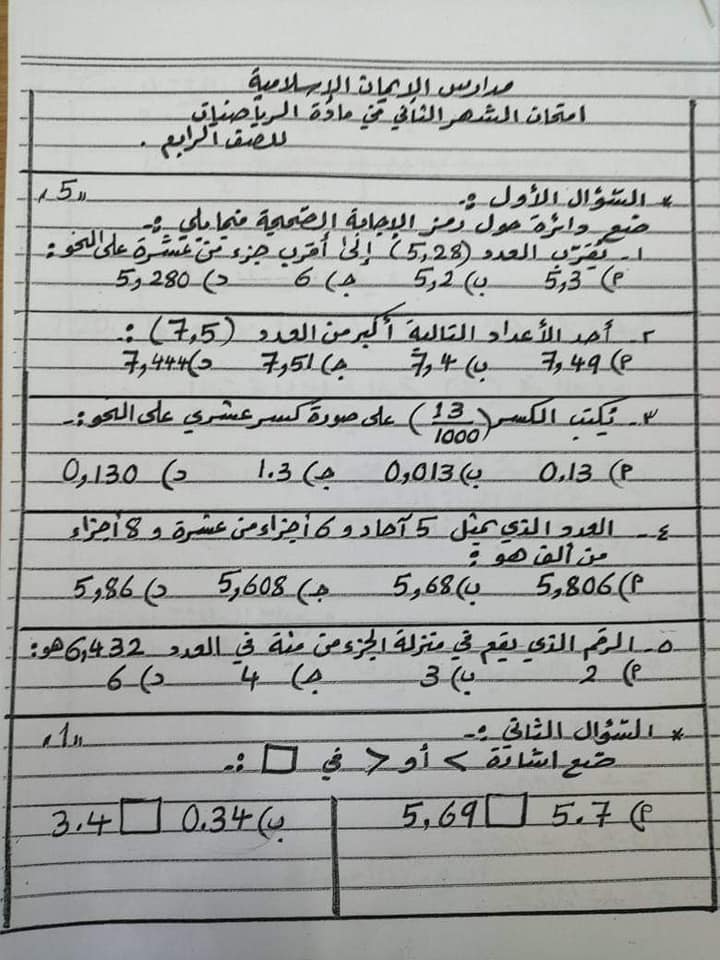 مدارس الإيمان الإسلامية
امتحان الشهر الثاني في مادة الرياضيات
للصف الرابع .
* السؤال الأول :- "5"
ضع دائرة حول رمز الإجابة الصحيحة فيما يلي :-
١- يُقرّب العدد (5,28) إلى أقرب جزء من عشرة على النحو :
أ) 5,3 ب) 5,2 جـ) 6 د) 5,280
٢- أحد الأعداد التالية أكبر من العدد (7,5) :-
أ) 7,49 ب) 7,4 جـ) 7,51 د) 7,444
٣- يُكتب الكسر (13/1000) على صورة كسر عشري على النحو :-
أ) 0.13 ب) 0,013 جـ) 1.3 د) 0,130
٤- العدد الذي يمثل 5 آحاد و 6 أجزاء من عشرة و 8 أجزاء
من ألف هو :
أ) 5,806 ب) 5,68 جـ) 5,608 د) 5,86
٥- الرقم الذي يقع في منزلة الجزء من مئة في العدد 6,432 هو :
أ) 2 ب) 3 جـ) 4 د) 6
* السؤال الثاني :- "1"
ضع اشارة < أو > في □ :-
أ) 5.7 □ 5,69 ب) 0.34 □ 3.4